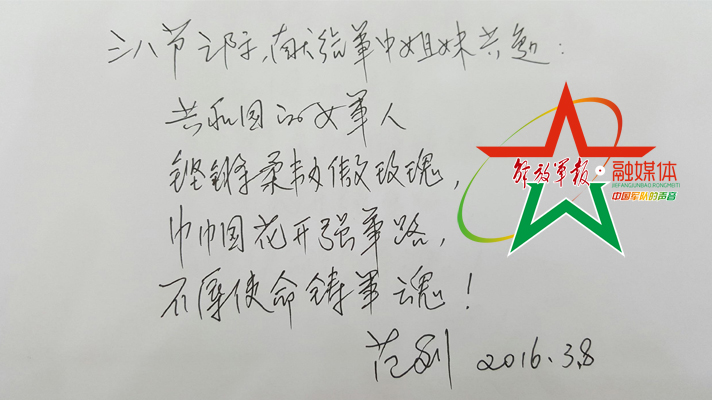 三八节之际,献给军中姐妹共勉:
共和国的女军人
铿锵柔韧傲玫瑰,
巾帼花开强军路,
不辱使命铸军魂!
范 2016.3.8
解放军报·融媒体
JIEFANGJUNBAO RONGMEITI
中国军队的声音